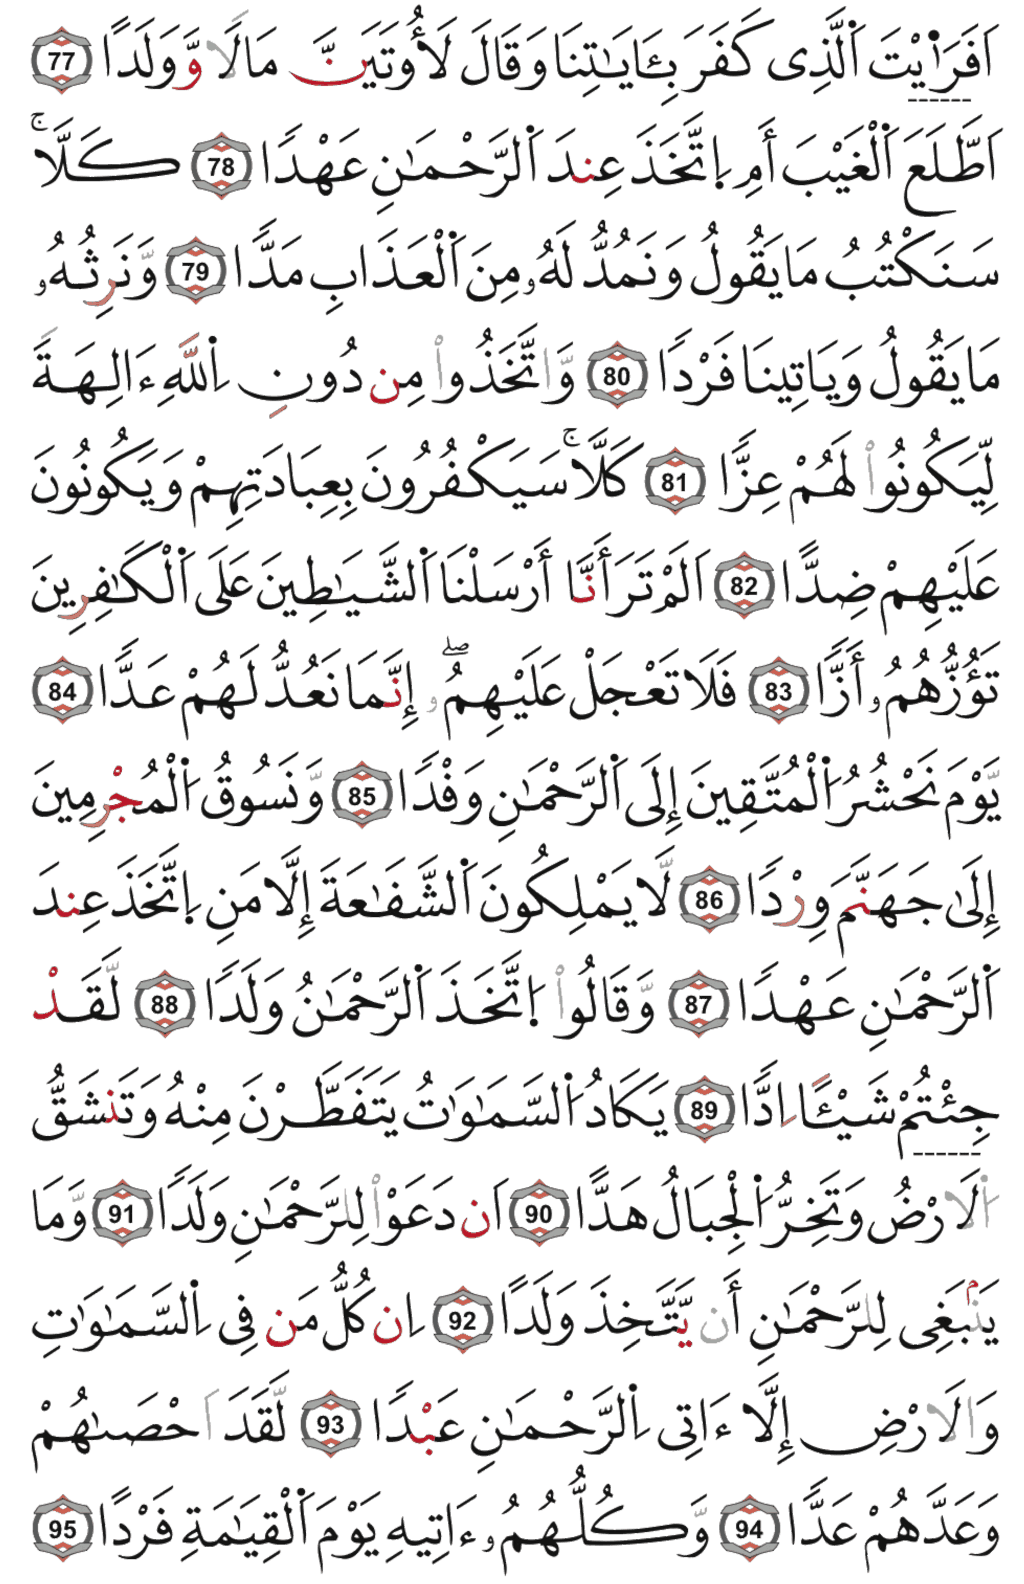 اَفَرَٰ۬يْتَ اَ۬لَّذِى كَفَرَ بِـَٔايَٰتِنَا وَقَالَ لَأُوتَيَنَّ مَالًا وَّوَلَدًا 77
اَطَّلَعَ اَ۬لْغَيْبَ أَمِ اِ۪تَّخَذَ عِندَ اَ۬لرَّحْمَٰنِ عَهْدًا 78 كَلَّاۚ
سَنَكْتُبُ مَا يَقُولُ وَنَمُدُّ لَهُۥ مِنَ اَ۬لْعَذَابِ مَدًّا 79 وَّنَرِثُهُۥ
مَا يَقُولُ وَيَاتِينَا فَرْدًا 80 وَّاتَّخَذُواْ مِن دُونِ اِ۬للَّهِ ءَالِهَةً
لِّيَكُونُواْ لَهُمْ عِزًّا 81 كَلَّاۚ سَيَكْفُرُونَ بِعِبَادَتِهِمْ وَيَكُونُونَ
عَلَيْهِمْ ضِدًّا 82 اَلَمْ تَرَ أَنَّا أَرْسَلْنَا اَ۬لشَّيَٰطِينَ عَلَى اَ۬لْكَٰفِرِينَ
تَؤُزُّهُمُۥ أَزًّا 83 فَلَا تَعْجَلْ عَلَيْهِمُۥۖ إِنَّمَا نَعُدُّ لَهُمْ عَدًّا 84
يَّوْمَ نَحْشُرُ اُ۬لْمُتَّقِينَ إِلَى اَ۬لرَّحْمَٰنِ وَفْدًا 85 وَّنَسُوقُ اُ۬لْمُجْرِمِينَ
إِلَىٰ جَهَنَّمَ وِرْدًا 86 لَّا يَمْلِكُونَ اَ۬لشَّفَٰعَةَ إِلَّا مَنِ اِ۪تَّخَذَ عِندَ
اَ۬لرَّحْمَٰنِ عَهْدًا 87 وَّقَالُواْ اُ۪تَّخَذَ اَ۬لرَّحْمَٰنُ وَلَدًا 88 لَّقَدْ
جِئْتُمْ شَيْـًٔا اِدًّا 89 يَكَادُ اُ۬لسَّمَٰوَٰتُ يَتَفَطَّرْنَ مِنْهُ وَتَنشَقُّ
اُ۬لَارْضُ وَتَخِرُّ اُ۬لْجِبَالُ هَدًّا 90 اَن دَعَوْاْ لِلرَّحْمَٰنِ وَلَدًا 91 وَّمَا
يَنۢبَغِى لِلرَّحْمَٰنِ أَن يَّتَّخِذَ وَلَدًا 92 اِن كُلُّ مَن فِى اِ۬لسَّمَٰوَٰتِ
وَالَارْضِ إِلَّا ءَاتِى اِ۬لرَّحْمَٰنِ عَبْدًا 93 لَّقَدَ اَحْصَىٰهُمْ
وَعَدَّهُمْ عَدًّا 94 وَّكُلُّهُمُۥ ءَاتِيهِ يَوْمَ اَ۬لْقِيَٰمَةِ فَرْدًا 95